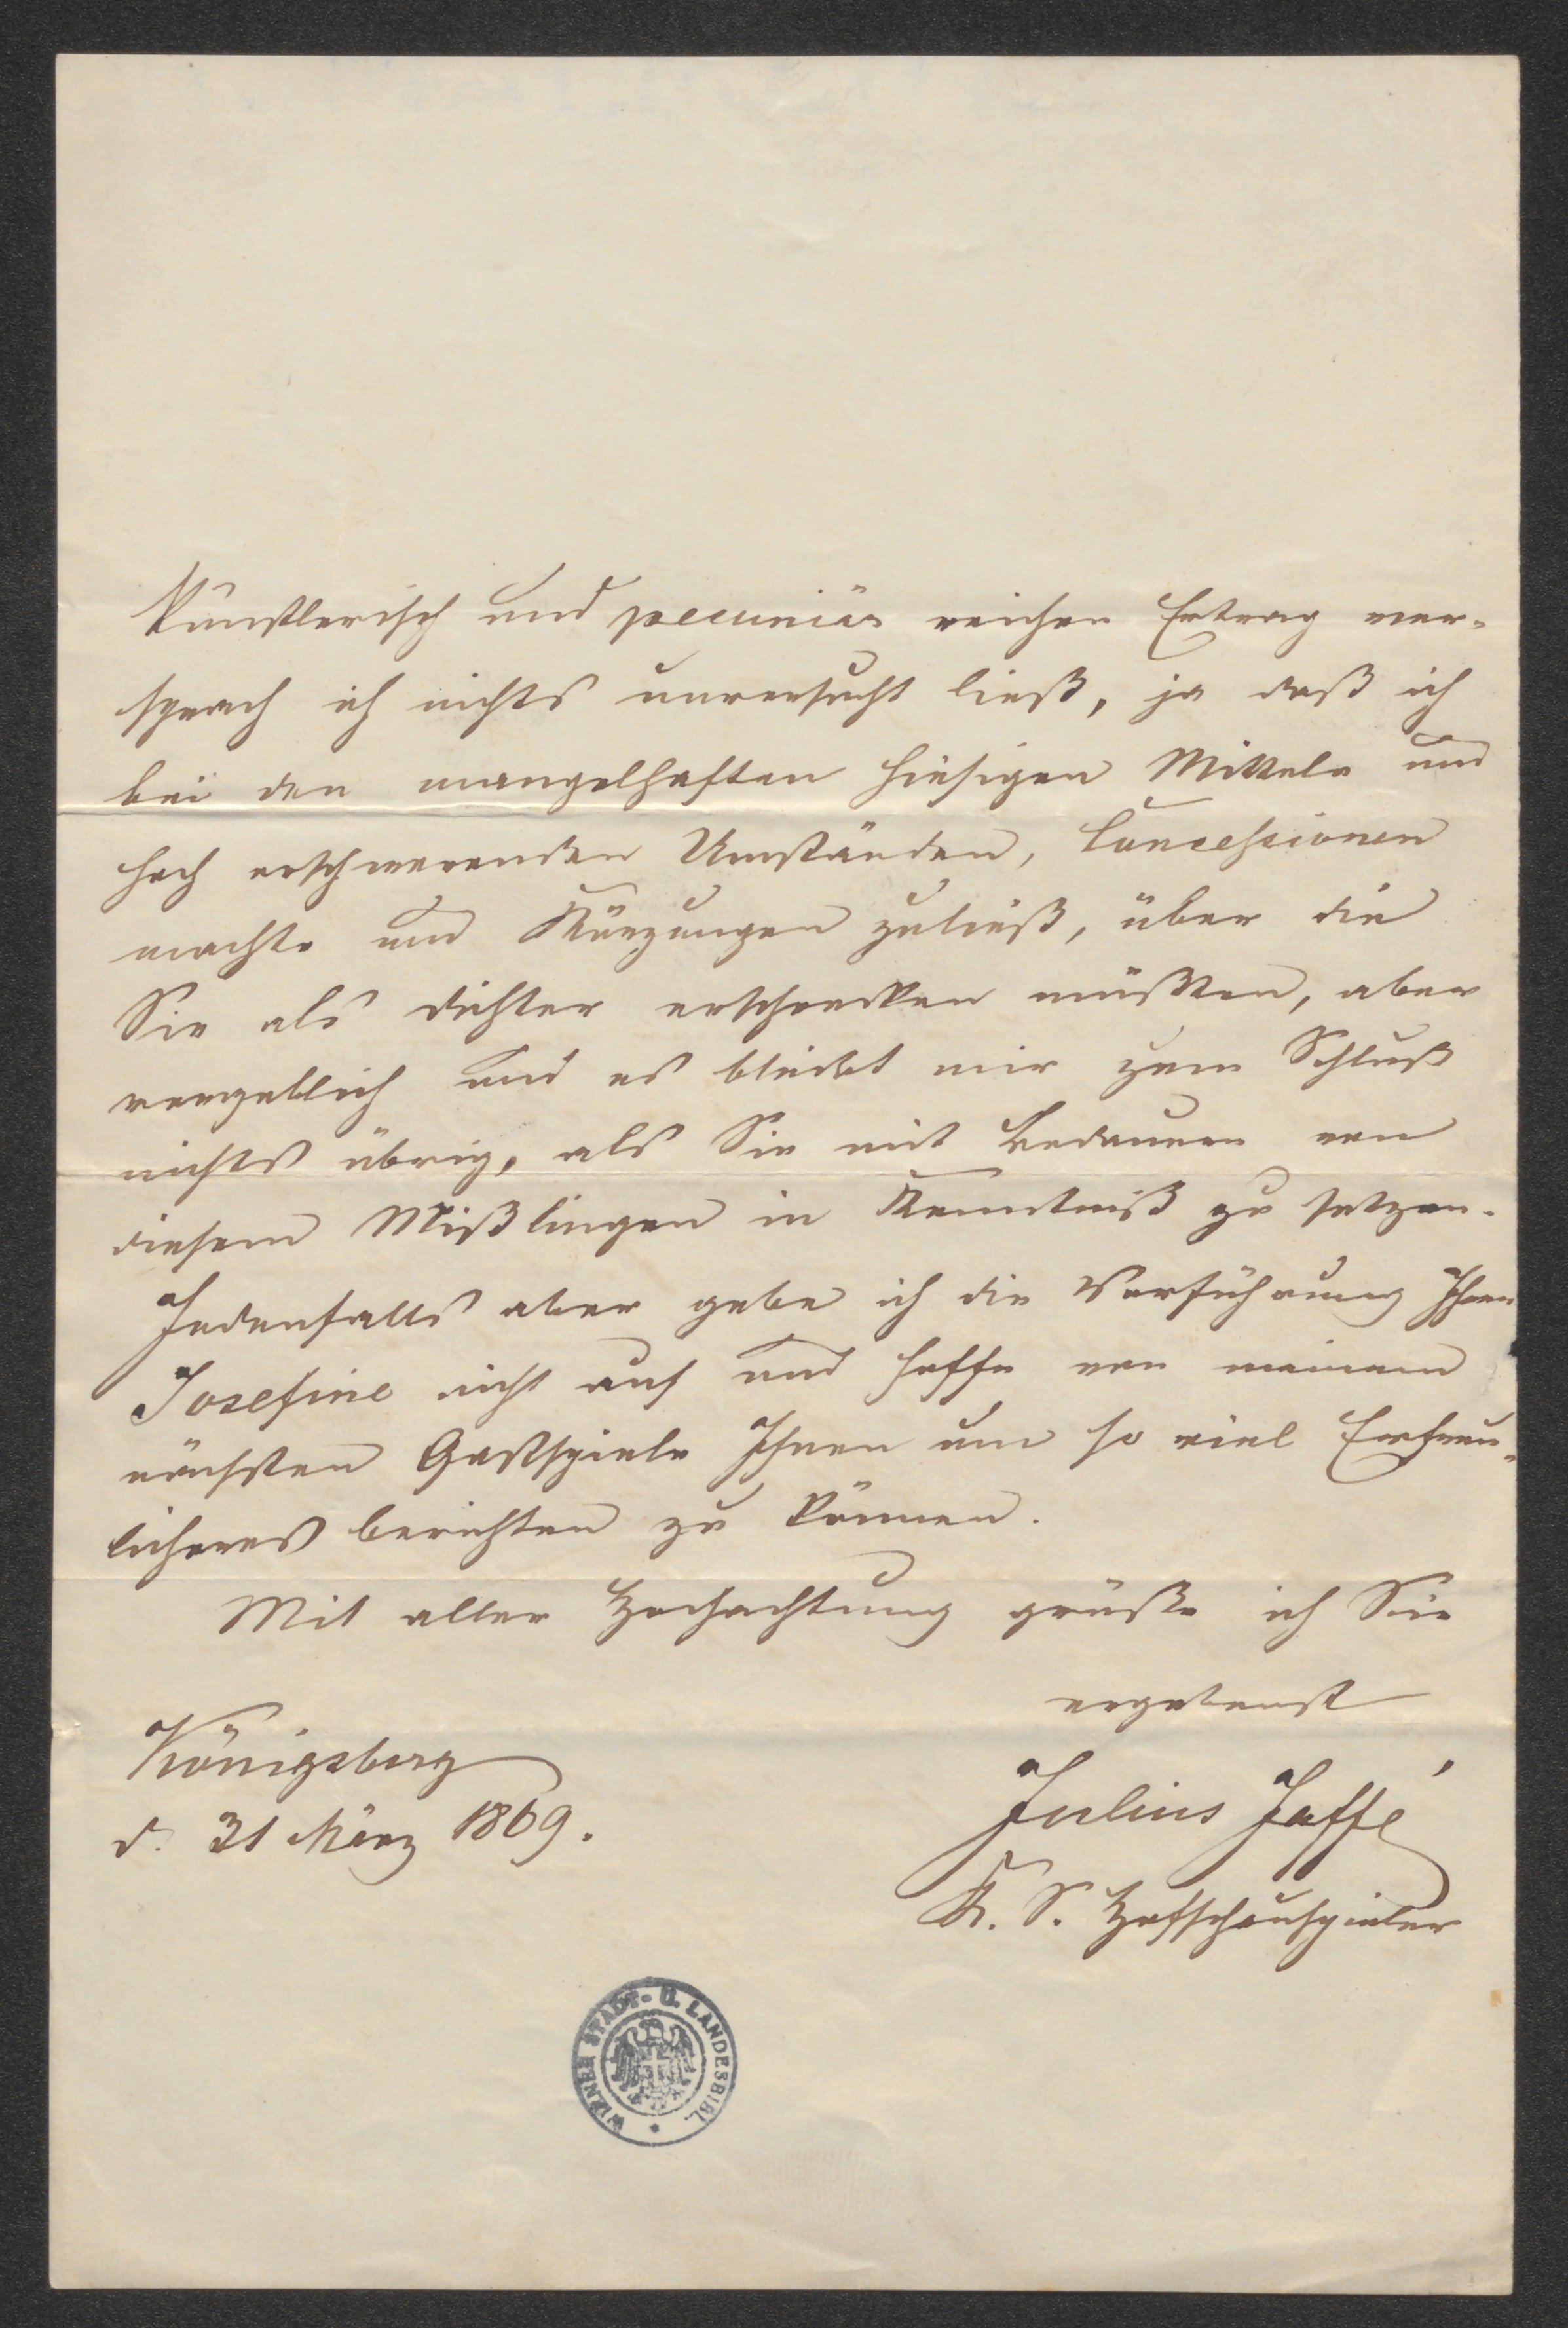 künstlerisch und pecuniär reichen Ertrag ver-
sprach ich nichts unversucht ließ, ja daß ich
bei den mangelhaften hiesigen Mitteln und
hoch erschwerenden Umständen, Concessionen
machte und Kürzungen zuließ, über die
Sie als Dichter erschrecken müßten, aber
vergeblich und es bleibt mir zum Schluß
nichts übrig, als Sie mit Bedauern von
diesem Mißlingen in Kenntniß zu setzen.
Jedenfalls aber gebe ich die Vorführung Ihrer
Josefine nicht auf und hoffe von meinem
nächsten Gastspiele Ihnen um so viel Erfreu-
licheres berichten zu können.
Mit aller Hochachtung grüße ich Sie
ergebenst
Königsberg
d. 31 März 1869.
Julius Jaffé
K. S. Hofschauspieler
WIENER STADT- U. LANDESBIBL.